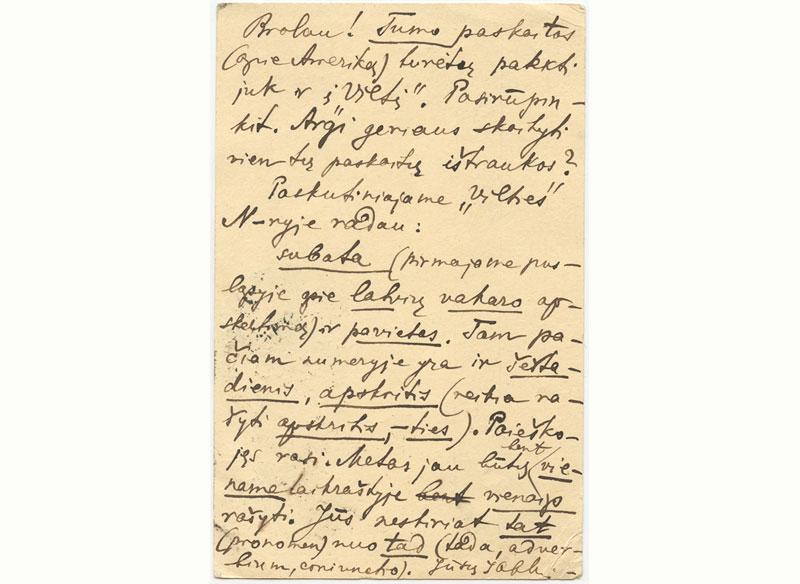 Brolau! Tumo paskaitos
(apie Ameriką) turėtų patekti
juk ir į „Viltį“. Pasirūpin-
kit. Argi geriaus skaityti
vien tų paskaitų ištraukos?
Paskutiniajame „Vilties“
N-ryje radau:
subata (pirmajame pus-
lapyje apie latvių vakaro ap-
skelbimą) ir pavietas. Tam pa-
čiam numeryje yra ir šešta-
dienis, apskritis (reikia ra-
šyti apskritis, -ties). Paieško-
jęs rasi. Metas jau būtų bent vie-
name laikraštyje bent vienaip
rašyti. Jūs neskiriat tat
(pronomen) nuo tad (tada, adver-
bium, coniunctio). Jūsų Jabl.